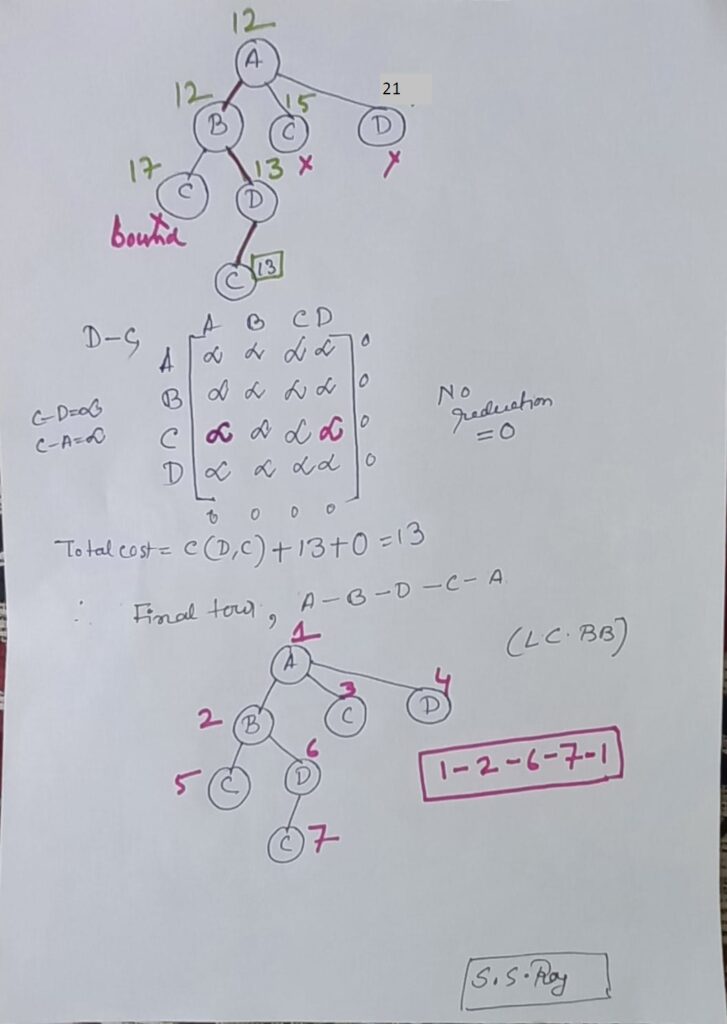 12
A
12 15 21
B C D
17 13 x x
C D
x
bound
C 13
D-C A B C D
A ∝ ∝ ∝ ∝ 0
B ∝ ∝ ∝ ∝ 0
C-D=∝
C-A=∝
C ∝ ∝ ∝ ∝ 0
D ∝ ∝ ∝ ∝ 0
0 0 0 0
No
reduction
=0
Total cost = C(D,C)+13+0=13
∴ Final tour, A-B-D-C-A
(LC.BB)
1
A
3 4
2 B C D
6
5 C D
C 7
1-2-6-7-1
S.S.Roy